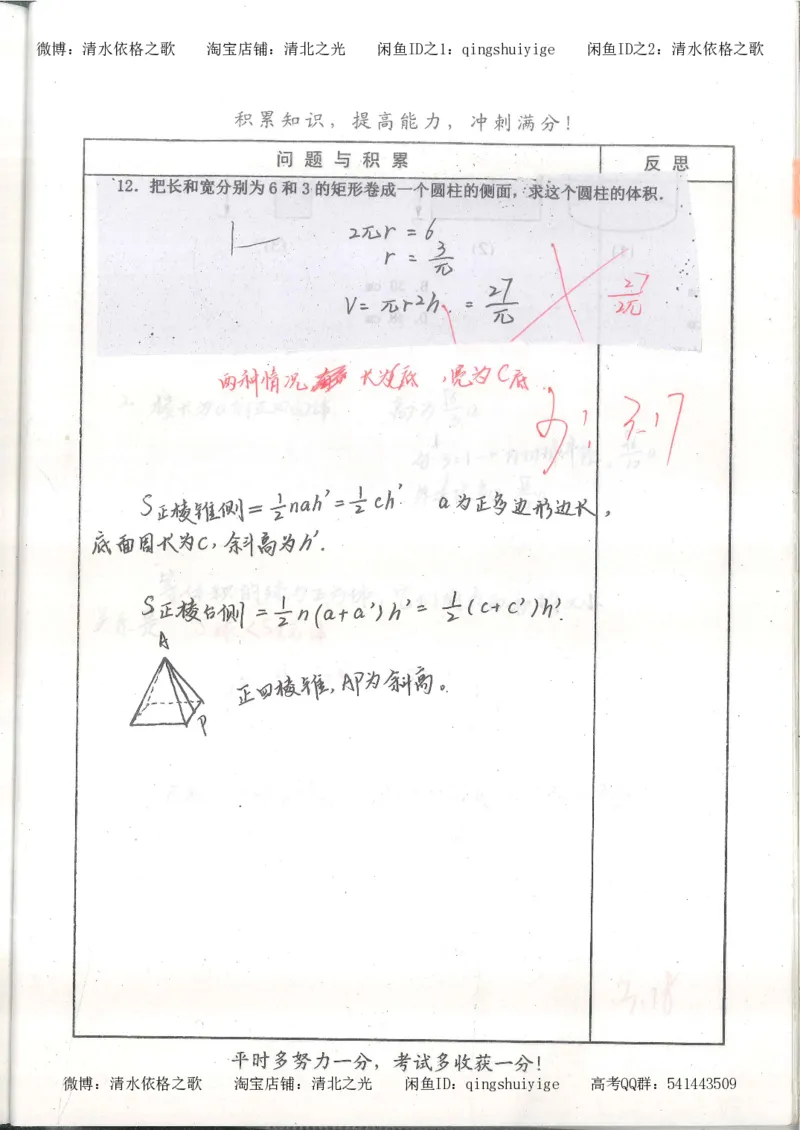 微博：清水依格之歌 淘宝店铺：清北之光 闲鱼ID之1：qingshuiyige 闲鱼ID之2：清水依格之歌
积累知识，提高能力，冲刺满分！
问题与积累 反思
12．把长和宽分别为6和3的矩形卷成一个圆柱的侧面，求这个圆柱的体积．
2πr = 6
r = 3/π
V = πr2h = 27/π
27/2π
两种情况 长为C底，宽为C底
3.17
S正棱锥侧 = 1/2 nah' = 1/2 ch'. a为正多边形边长，
底面周长为C，斜高为h'.
S正棱台侧 = 1/2 n(a+a')h' = 1/2 (c+c')h'.
A
正四棱锥，AP为斜高。
P
3.18
平时多努力一分，考试多收获一分！
微博：清水依格之歌 淘宝店铺：清北之光 闲鱼ID：qingshuiyige 高考QQ群：541443509